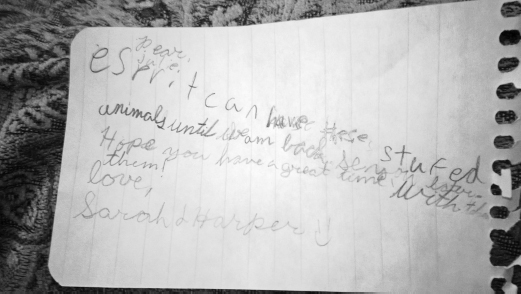 Dear,
espr, it can have these stufed
animals until we am back
Hope you have a great time with
them!
love,
Sarah & Harper :)